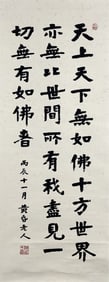 天上天下無如佛十方世界
亦無比世間所有我盡見一
切無有如佛者
丙辰十一月 黄昏老人